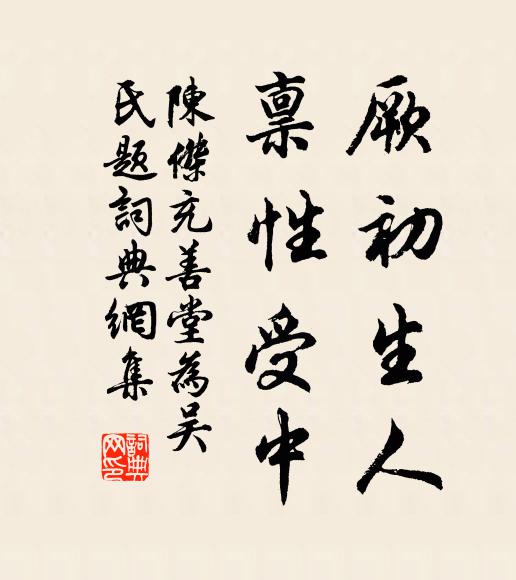 厥初生人
禀性受中
陳傑充善堂為吴
氏題詞典網集
詞典
网印